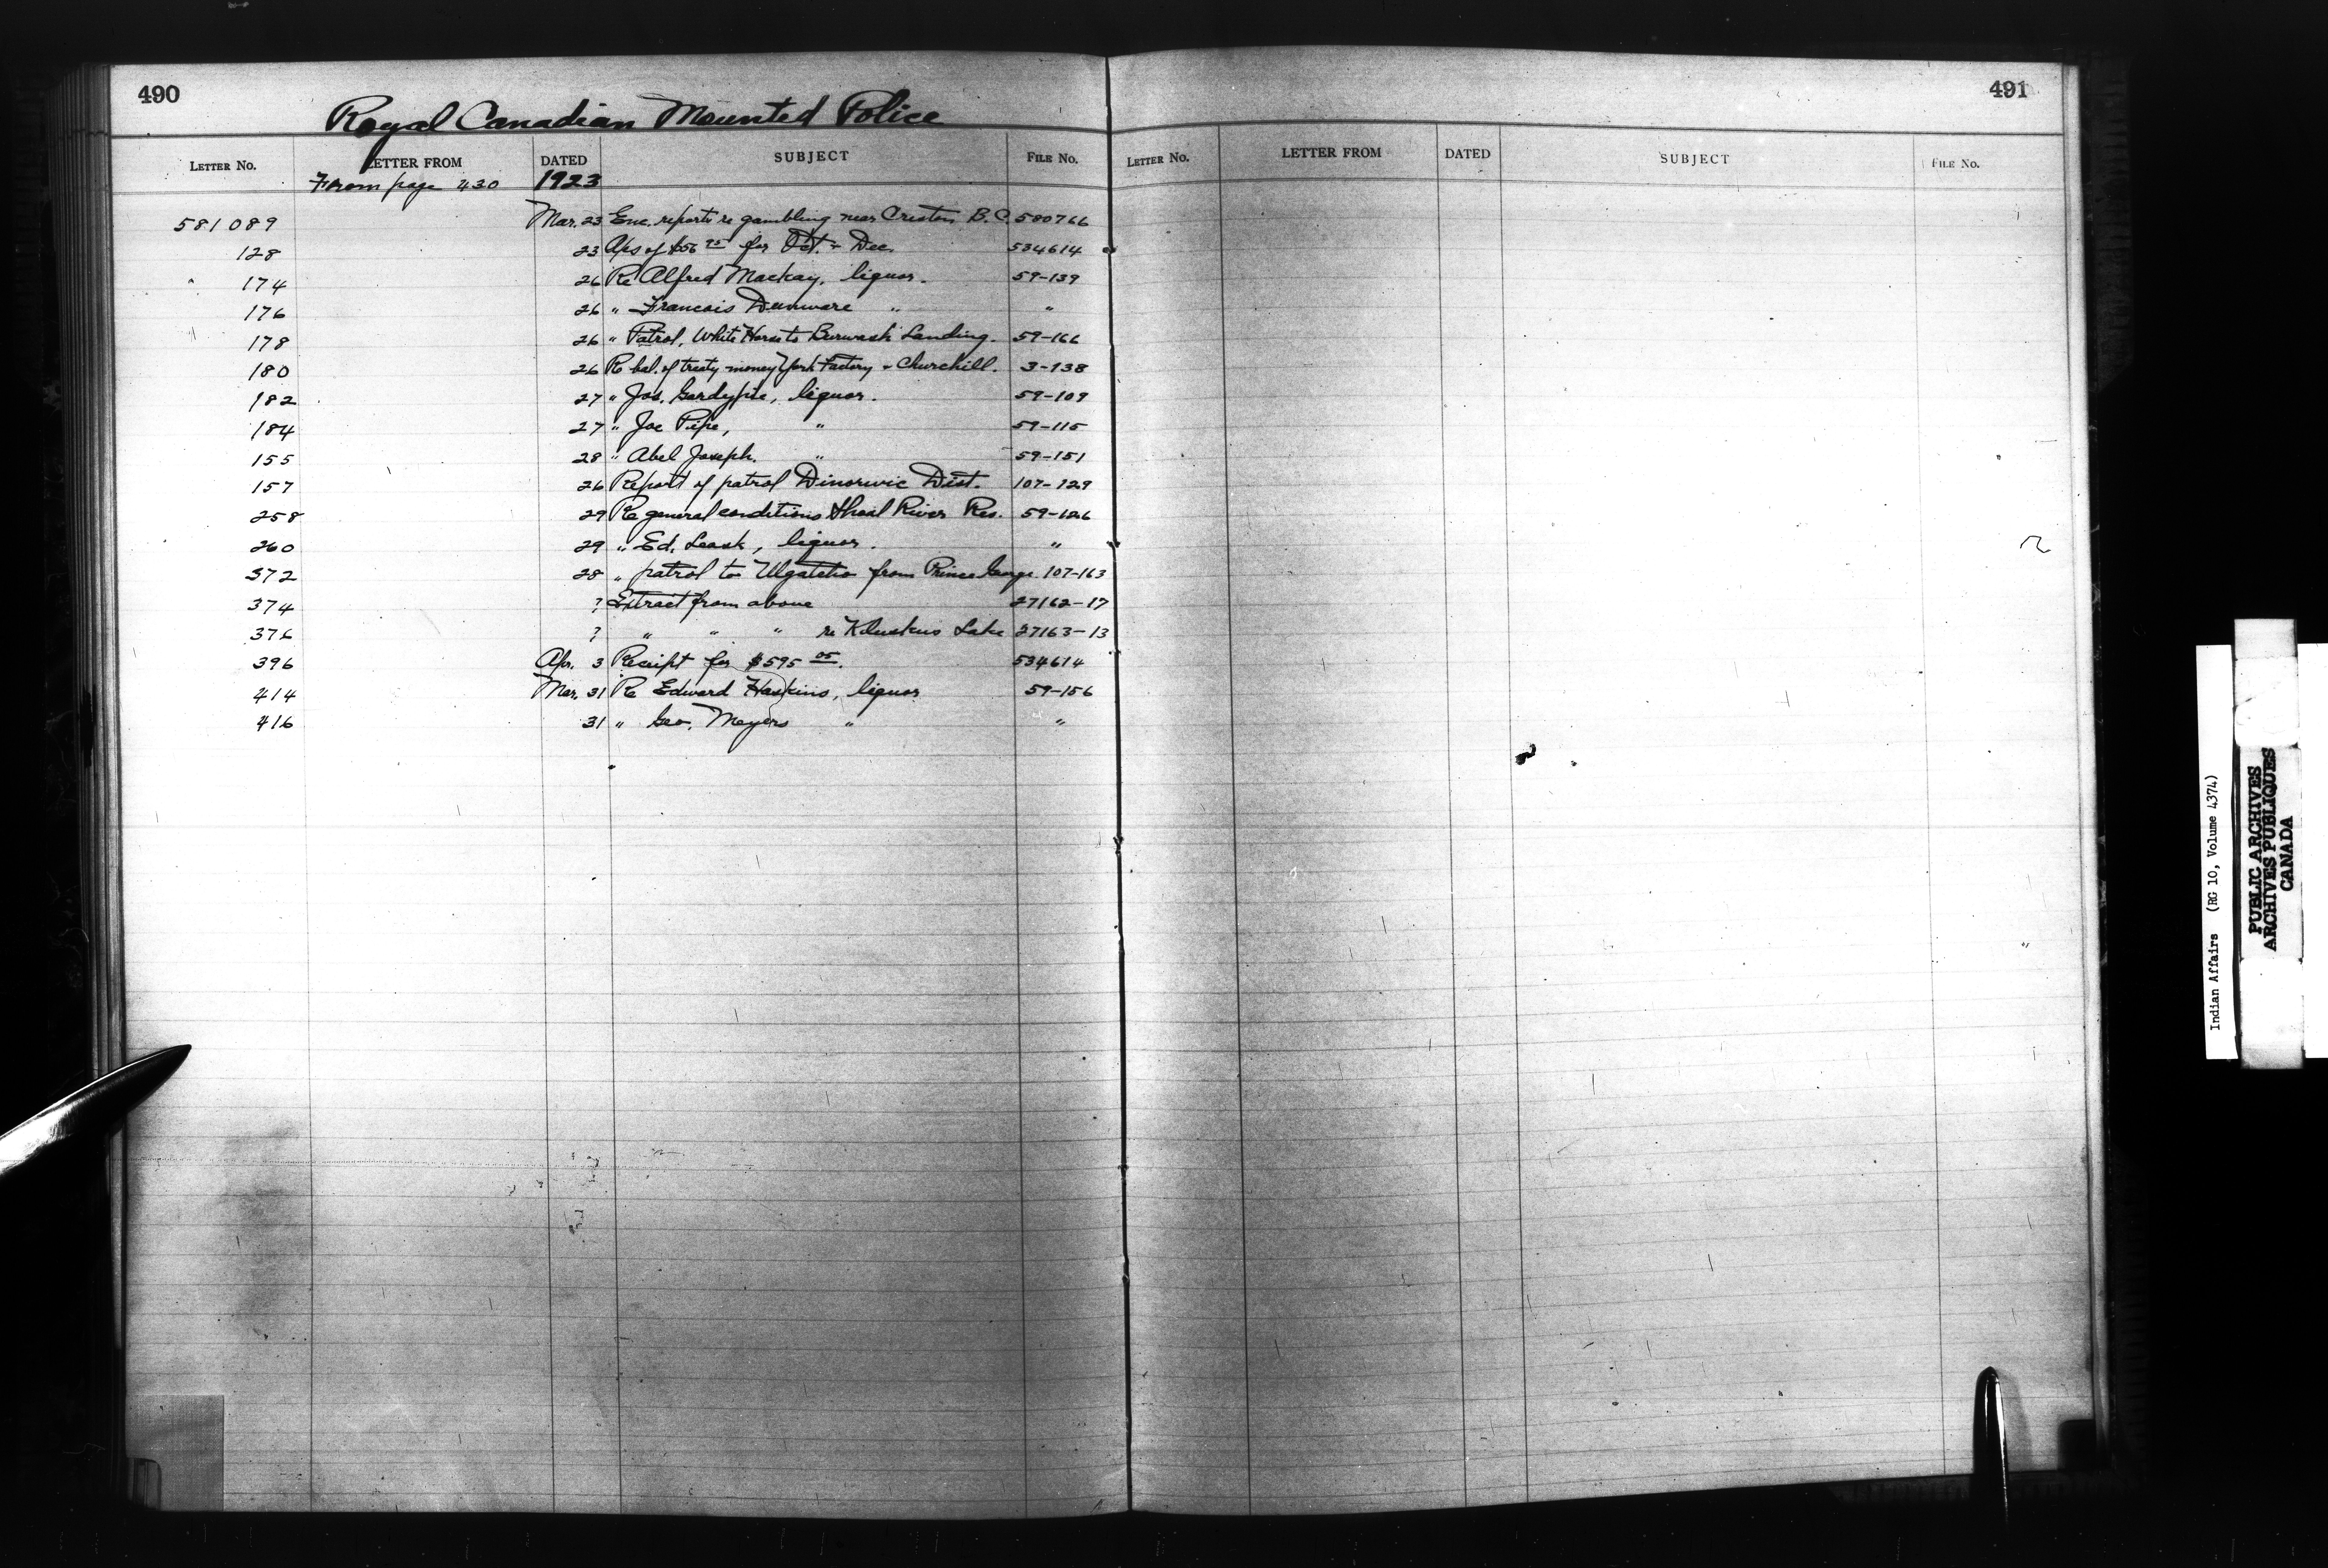 490
Royal Canadian Mounted Police
LETTER NO. LETTER FROM DATED SUBJECT FILE NO.
From page 430 1923
581089 Mar. 23 Enc. reports re gambling near Creston B.C. 580766
128 23 of $56 95 for Oct. - Dec. 534614
" 174 26 Re Alfred Mackay, liquor. 59-139
176 26 " Francois " "
178 26 " Patrol, White Horse to Burwash Landing. 59-166
180 26 Re bal. of treaty money York Factory & Churchill. 3-138
182 27 " Jos. liquor. 59-109
184 27 " Joe Pipe, " 59-115
155 28 " Abel Joseph. " 59-151
157 26 Report of patrol Dinorwic Dist. 107-129
258 29 Re general conditions Shoal River Res. 59-126
260 29 " Ed. Leask, liquor. "
372 28 " patrol to Ulgatcho from Prince George 107-163
374 ? Extract from above 27162-17
376 ? " " " re Kluskus Lake 27163-13
396 Apr. 3 Receipt for $595 05. 534614
414 Mar. 31 Re Edward Haskins, liquor 59-156
416 31 " Geo. Meyers " "
491
LETTER NO. LETTER FROM DATED SUBJECT FILE NO.
Indian Affairs (RG 10, Volume 4374)
PUBLIC ARCHIVES
ARCHIVES PUBLIQUES
CANADA